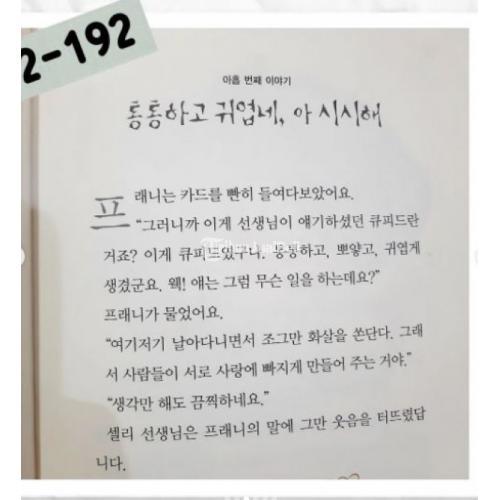 2-192
아홉 번째 이야기
통통하고 귀엽네, 아 시시해
프래니는 카드를 빤히 들여다보았어요.
“그러니까 이게 선생님이 얘기하셨던 큐피드란
거죠? 이게 큐피드였구나. 통통하고, 뽀얗고, 귀엽게
생겼군요. 웩! 얘는 그럼 무슨 일을 하는데요?”
프래니가 물었어요.
“여기저기 날아다니면서 조그만 화살을 쏜단다. 그래
서 사람들이 서로 사랑에 빠지게 만들어 주는 거야.”
“생각만 해도 끔찍하네요.”
셀리 선생님은 프래니의 말에 그만 웃음을 터뜨렸답
니다.